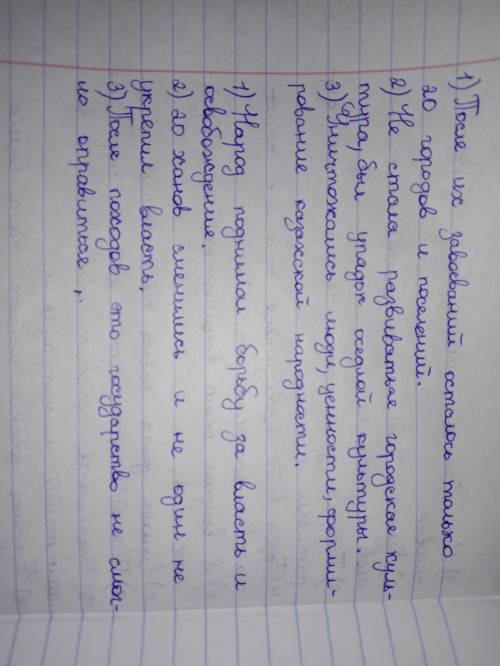 1) После их завоеваний осталось только
20 городов и поселений.
2) Не стала развиватная городская куль-
тура, был упадок оседлой культуры.
3) Уничтожались люди, ценности, форми-
рование казахской народности.
1) Народ поднимал борьбу за власть и
освобождение.
2) 20 ханов сменились и не один не
укрепил власть.
3) После походов это государство не смог-
ло оправиться.